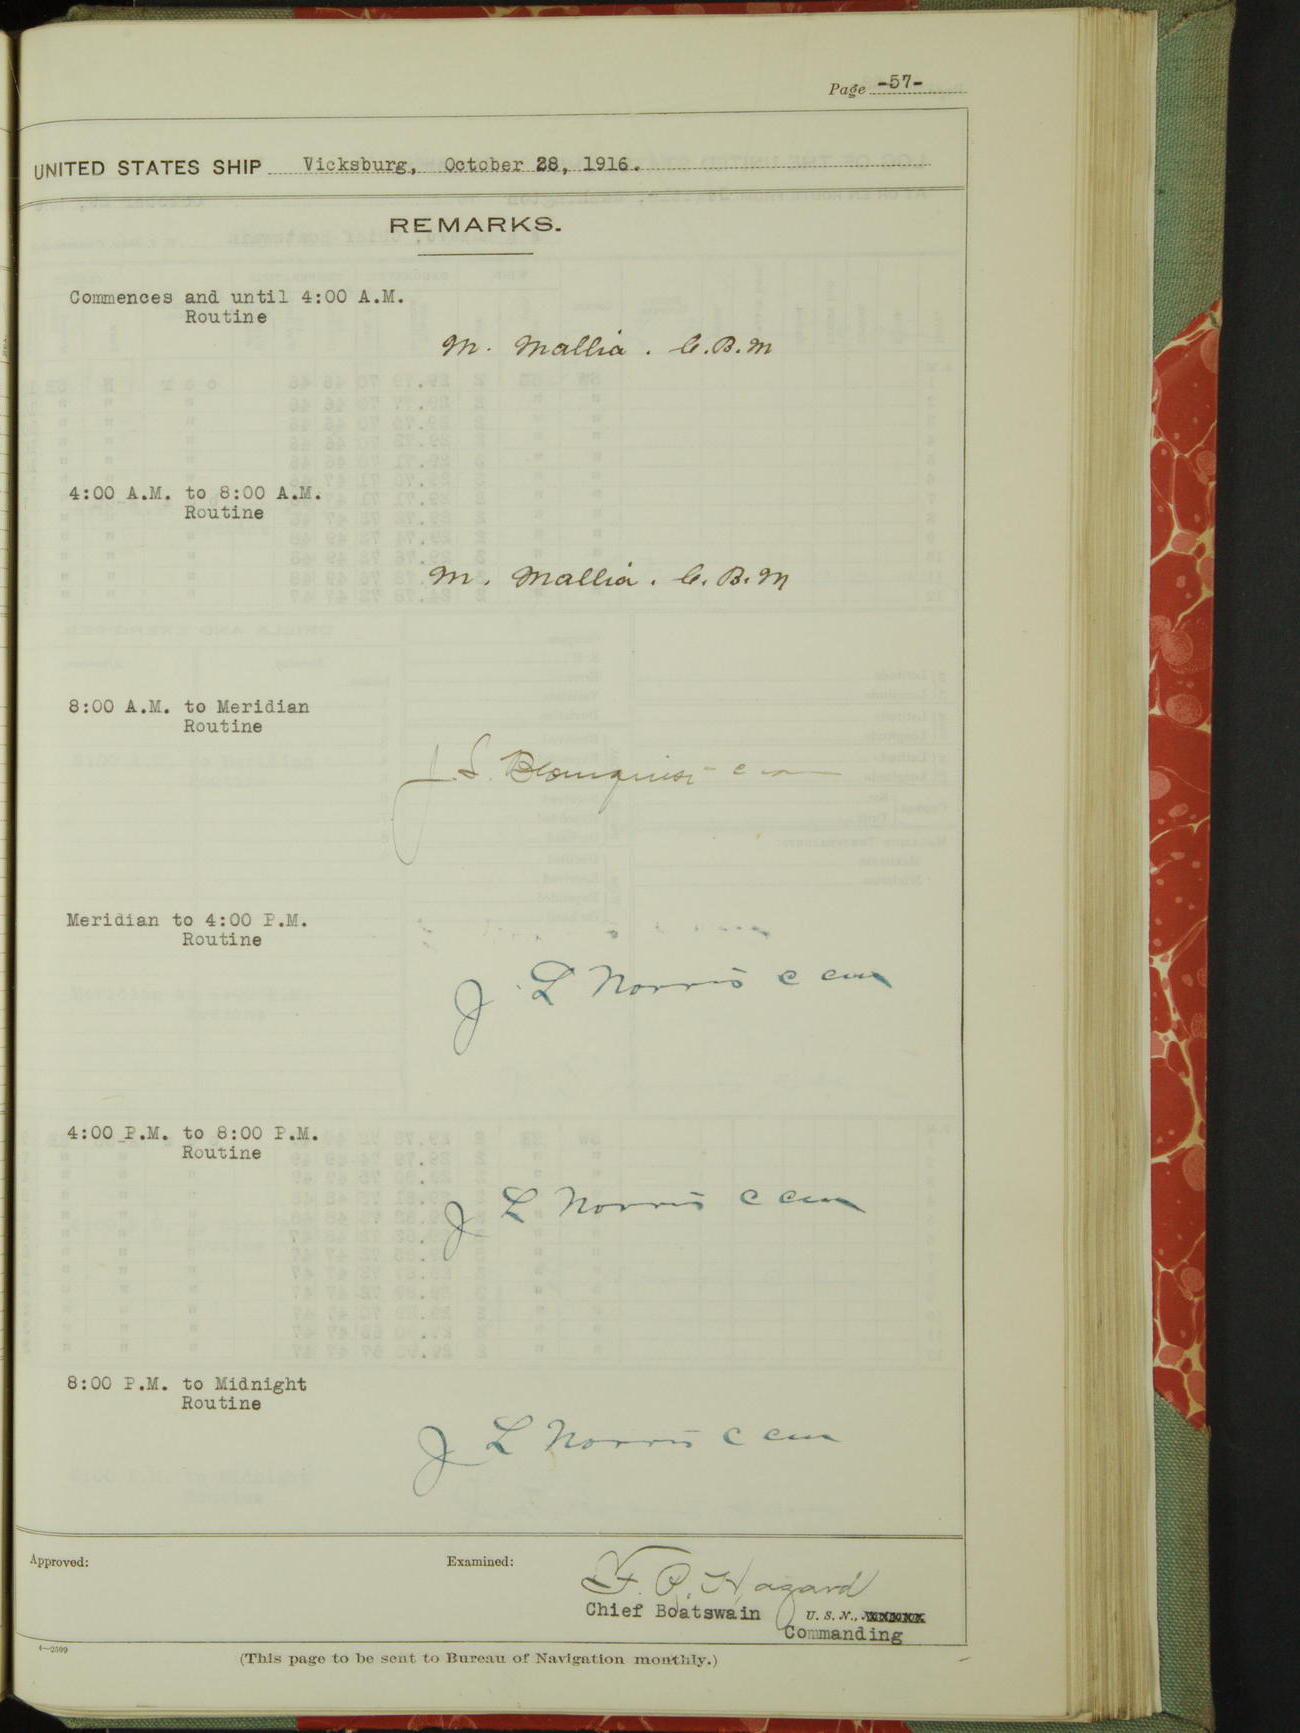 Page -57-
UNITED STATES SHIP Vicksburg, October 28, 1916.
REMARKS.
Commences and until 4:00 A.M.
Routine
M. Mallia. C.B.M
4:00 A.M. to 8:00 A.M.
Routine
M. Mallia. C.B.M
8:00 A.M. to Meridian
Routine
J. S. Blomquist
Meridian to 4:00 P.M.
Routine
J L Norris C
4:00 P.M. to 8:00 P.M.
Routine
J L Norris C
8:00 P.M. to Midnight
Routine
J L Norris C
Approved:
Examined:
F. R. Hazard
Chief Boatswain U. S. N.,
Commanding
4—2599
(This page to be sent to Bureau of Navigation monthly.)